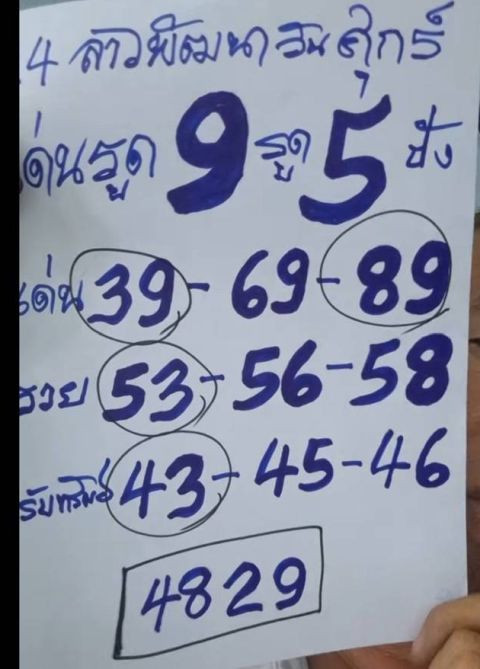 4 ลาวพัฒนา วันศุกร์
เด่นรูด 9 รูด 5 ปัง
เด่น 39-69-89
รวย 53-56-58
รับทรัพย์ 43-45-46
4829